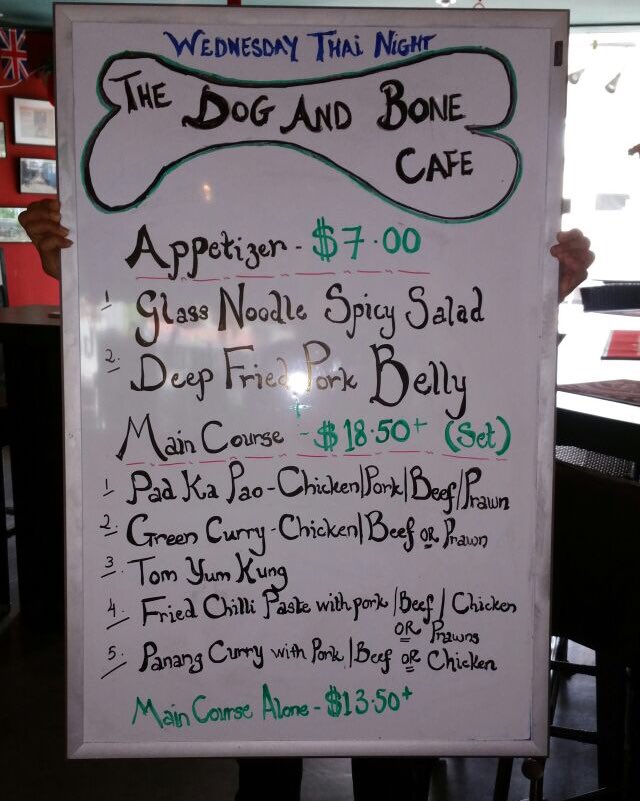 Wednesday Thai Night
The Dog And Bone
Cafe
Appetizer - $7.00
1 Glass Noodle Spicy Salad
2. Deep Fried Pork Belly
Main Course - $18.50+ (Set)
1 Pad Ka Pao - Chicken/Pork/Beef/Prawn
2. Green Curry - Chicken/Beef or Prawn
3. Tom Yum Kung
4. Fried Chilli Paste with pork/Beef/Chicken
OR Prawns
5. Panang Curry with Pork/Beef OR Chicken
Main Course Alone - $13.50+